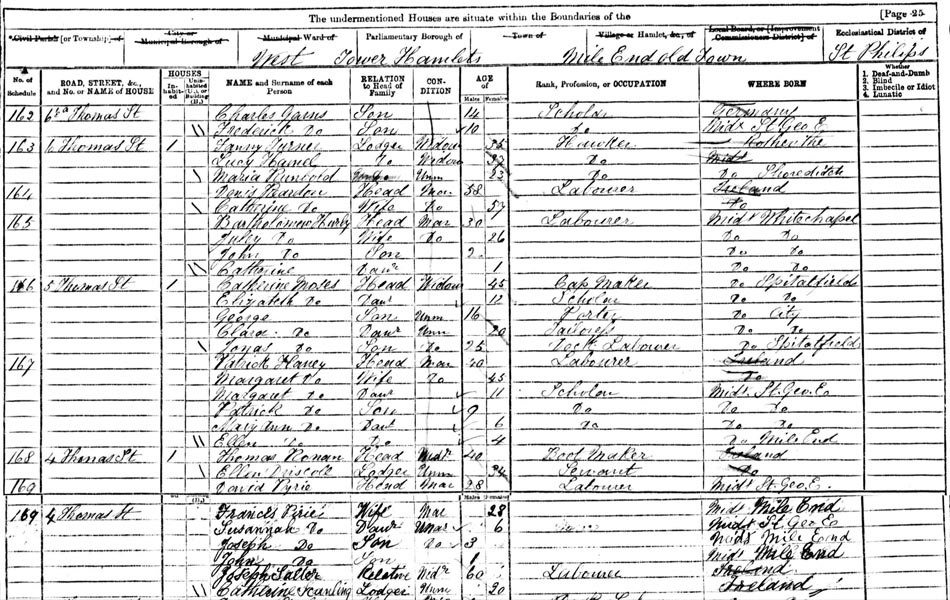 The undermentioned Houses are situate within the Boundaries of the [Page 25
Civil Parish [or Township] of City or Municipal Borough of Municipal Ward of Parliamentary Borough of Town of Village or Hamlet, &c., of Local Board, or [Improvement Commissioners District] of Ecclesiastical District of
West Tower Hamlets Mile End Old Town St Philips
No. of Schedule ROAD, STREET, &c., and No. or NAME of HOUSE HOUSES In-habited Uninhabited (U.), or Building (B.) NAME and Surname of each Person RELATION to Head of Family CON-DITION AGE Males Females Rank, Profession, or OCCUPATION WHERE BORN Whether 1. Deaf-and-Dumb 2. Blind 3. Imbecile or Idiot 4. Lunatic
162 Thomas St Charles Son 14 Scholar Germany
Frederick Do Son 10 Do Midx St. Geo E
163 6 Thomas St 1 Lodger Widow 35 Hawker
Lucy Hamel Do Widow Do Midx
Maria Unm 23 Do Do Shoreditch
164 Denis Head Mar 58 Labourer Ireland
Catherine Do Wife Do 57 Do
165 Bartholomew Head Mar 30 Labourer Midx Whitechapel
Do Wife Do 26 Do Do
John Do Son 2 Do Do
Catherine Daur 1 Do Do
166 5 Thomas St 1 Catherine Moses Head Widow 45 Cap Maker Do Spitalfields
Elizabeth Do Daur 12 Scholar Do Do
George Son Unm 16 Do City
Clara Do Daur Unm 20 Tailoress Do Do
Jonas Do Son Do 25 Dock Labourer Do Spitalfields
167 Patrick Haney Head Mar 40 Labourer Ireland
Margaret Do Wife Do 45 Do
Margaret Do Daur 11 Scholar Midx St. Geo. E
Patrick Do Son 9 Do Do Do
Mary Ann Do Daur 6 Do Do Do
Ellen Do Do 4 Do Mile End
168 4 Thomas St 1 Thomas Ronan Head Widr 40 Boot Maker Ireland
Ellen Driscoll Lodger Unm 34 Servant Do
169 David Pyrie Head Mar 28 Labourer Midx St. Geo. E.
Males Females
169 4 Thomas St Frances Pirie Wife Mar 28 Midx Mile End
Susannah Do Daur Unmar 6 Midx St Geo E
Joseph Do Son Do 3 Midx Mile End
John Do Son 1 Midx Mile End
Joseph Salter Relative Widr 60 Labourer Ireland
Catherine Lodger Unm 20 Ireland